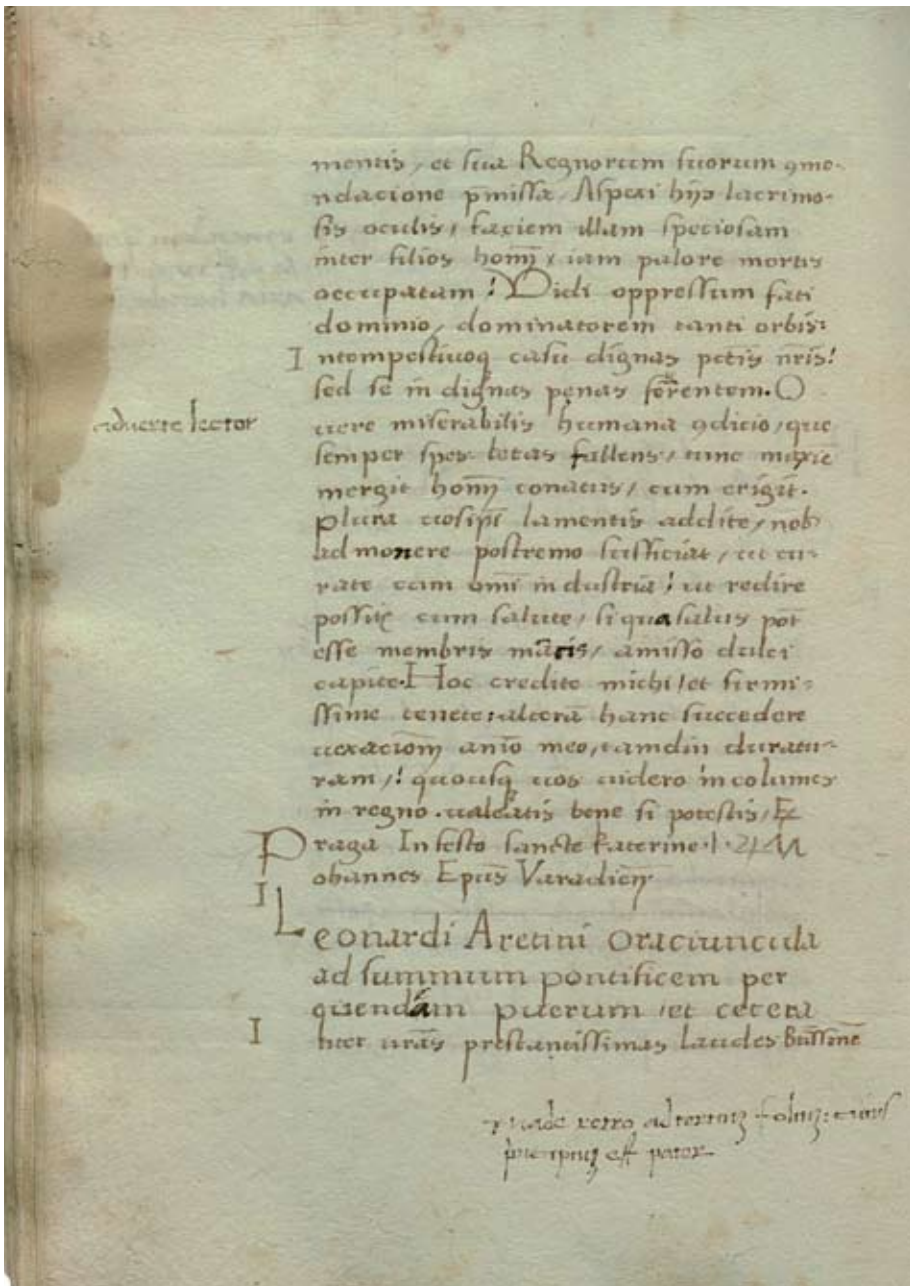 mentis / et sua Regnorum suorum ꝯme-
ndacione p̄missa / Aspexi hijs lacrimo-
sis oculis / faciem illam speciosam
inter filios homī / iam palore mortis
occupatam ! Vidi oppressum fati
dominio / dominatorem tanti orbis:
Intempestiuoqꝫ casu dignas pctis nr̄is!
sed se in dignas penas ferentem. O
aduerte lector
uere miserabilis humana ꝯdicio / que
semper spes letas fallens / tunc maxīe
mergit homī conatus / cum erigit.
plura lamentis addite / nob
ad monere postremo sufficiat / ut cu-
rate cum omī in dustria ! ut redire
possitis cum salute / si qua salus pot̄
esse membris / amisso dulci
capite. Hoc credite michi / et firmi-
ssime tenete: alterā hanc succedere
uexacionē anīo meo, tamdiu duratu-
ram / ! quousqꝫ uos uidero in columes
in regno . ualeatis bene si potestis / Ex
Praga In festo sancte katerine
Iohannes Epūs Varadieñ.
Leonardi Aretini Oraciuncula
ad summum pontificem per
quendam puerum / et cetera
Inter ur̄as prestantissimas laudes
vade retro ad tertiuꝫ foliuꝫ: cuius